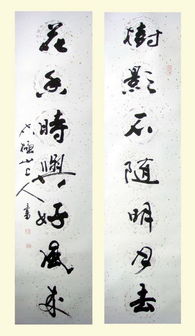 樹影不隨明月去
花香時與好風來